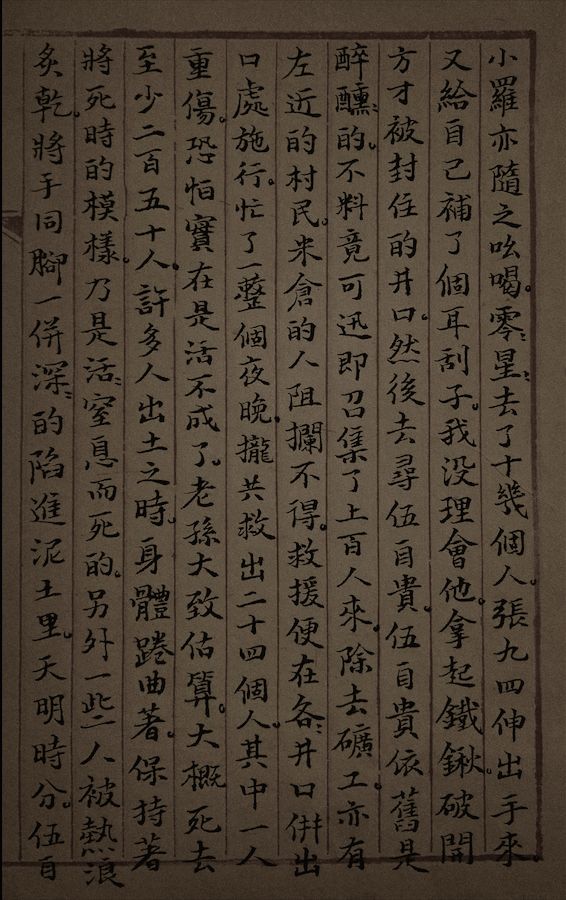 小羅亦隨之吆喝。零〻星〻去了十幾個人。張九四伸出手來
又給自己補了個耳刮子。我没理會他。拿起鐵鍬。破開
方才被封住的井口。然後去尋伍自貴。伍自貴依舊是
醉醺〻的。不料竟可迅即召集了上百人來。除去礦工。亦有
左近的村民。米倉的人阻攔不得。救援便在各〻井口併出
口處施行。忙了一整個夜晚。攏共救出二十四個人。其中一人
重傷。恐怕實在是活不成了。老孫大致估算。大概死去
至少二百五十人。許多人出土之時。身體踡曲著。保持著
將死時的模樣。乃是活〻窒息而死的。另外一些人被熱浪
炙乾。將手同腳一併深〻的陷進泥土里。天明時分。伍自